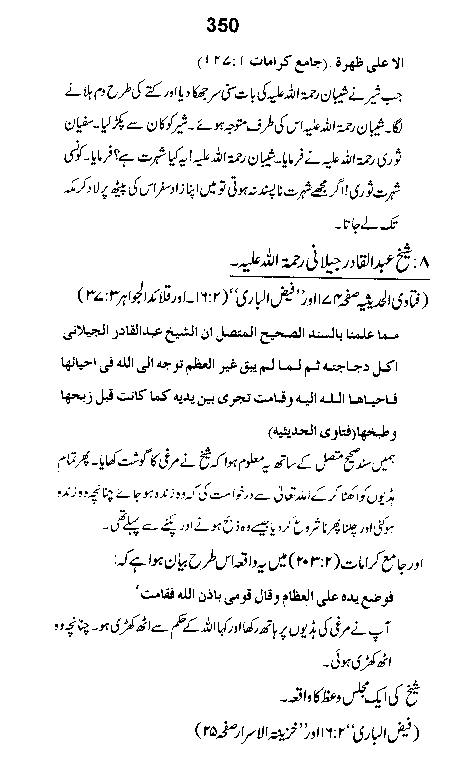 350
الا علی ظهرة ۔ (جامع کرامات ۱:۱۲۷)
جب شیر نے شیبان رحمۃ اللہ علیہ کی بات سنی سر جھکا دیا اور کتے کی طرح دم ہلانے
لگا۔ شیبان رحمۃ اللہ علیہ اس کی طرف متوجہ ہوئے۔ شیر کو کان سے پکڑ لیا۔ سفیان
ثوری رحمۃ اللہ علیہ نے فرمایا۔ شیبان رحمۃ اللہ علیہ! یہ کیا شہرت ہے؟ فرمایا۔ کونسی
شہرت ثوری! اگر مجھے شہرت ناپسند نہ ہوتی تو میں اپنا زاد سفر اس کی پیٹھ پر لاد کر مکہ
تک لے جاتا۔
۸: شیخ عبدالقادر جیلانی رحمۃ اللہ علیہ۔
(فتاوی الحدیثیہ صفحہ ۷۴ ا اور ’’فیض الباری‘‘ (۱۶:۲۔ اور قلائد الجواہر ۳۷:۳)
مما علمنا بالسند الصحیح المتصل ان الشیخ عبدالقادر الجیلانی
اکل دجاجتہ ثم لما لم یبق غیر العظم توجہ الی اللہ فی احیائها
فاحیاها اللہ الیہ وقامت تجری بین یدیہ کما کانت قبل زبحها
وطبخها (فتاوی الحدیثیہ)
ہمیں سند صحیح متصل کے ساتھ یہ معلوم ہوا کہ شیخ نے مرغی کا گوشت کھایا۔ پھر تمام
ہڈیوں کو اکھٹا کر کے اللہ تعالیٰ سے درخواست کی کہ وہ زندہ ہو جائے چنانچہ وہ زندہ
ہو گئی اور چلنا پھرنا شروع کر دیا جیسے وہ ذبح ہونے اور پکنے سے پہلے تھی۔
اور جامع کرامات (۲۰۳:۲) میں یہ واقعہ اس طرح بیان ہوا ہے کہ:
فوضع یدہ علی العظام وقال قومی باذن اللہ فقامت‘
آپ نے مرغی کی ہڈیوں پر ہاتھ رکھا اور کہا اللہ کے حکم سے اٹھ کھڑی ہو۔ چنانچہ وہ
اٹھ کھڑی ہوئی۔
شیخ کی ایک مجلس وعظ کا واقعہ۔
(فیض الباری‘‘ ۱۶:۲ اور ’’خزینۃ الاسرار صفحہ ۲۵)